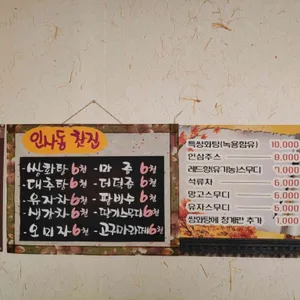 인사동 찻집
·쌍화탕 6천 - 마 죵 6천
·대추탕 6천 - 더덕죵 6천
·유자차 6천 - 팥빙수 6천
·생강차 6천 - 딸기스무디 6천
·오미자 6천 - 고구마라떼 6천
특쌍화탕(녹용함유) 10,000
인삼주스 8,000
레드향(유기농)스무디 7,000
석류차 6,000
망고스무디 6,000
유자스무디 6,000
쌍화탕에 청계란 추가 1,000